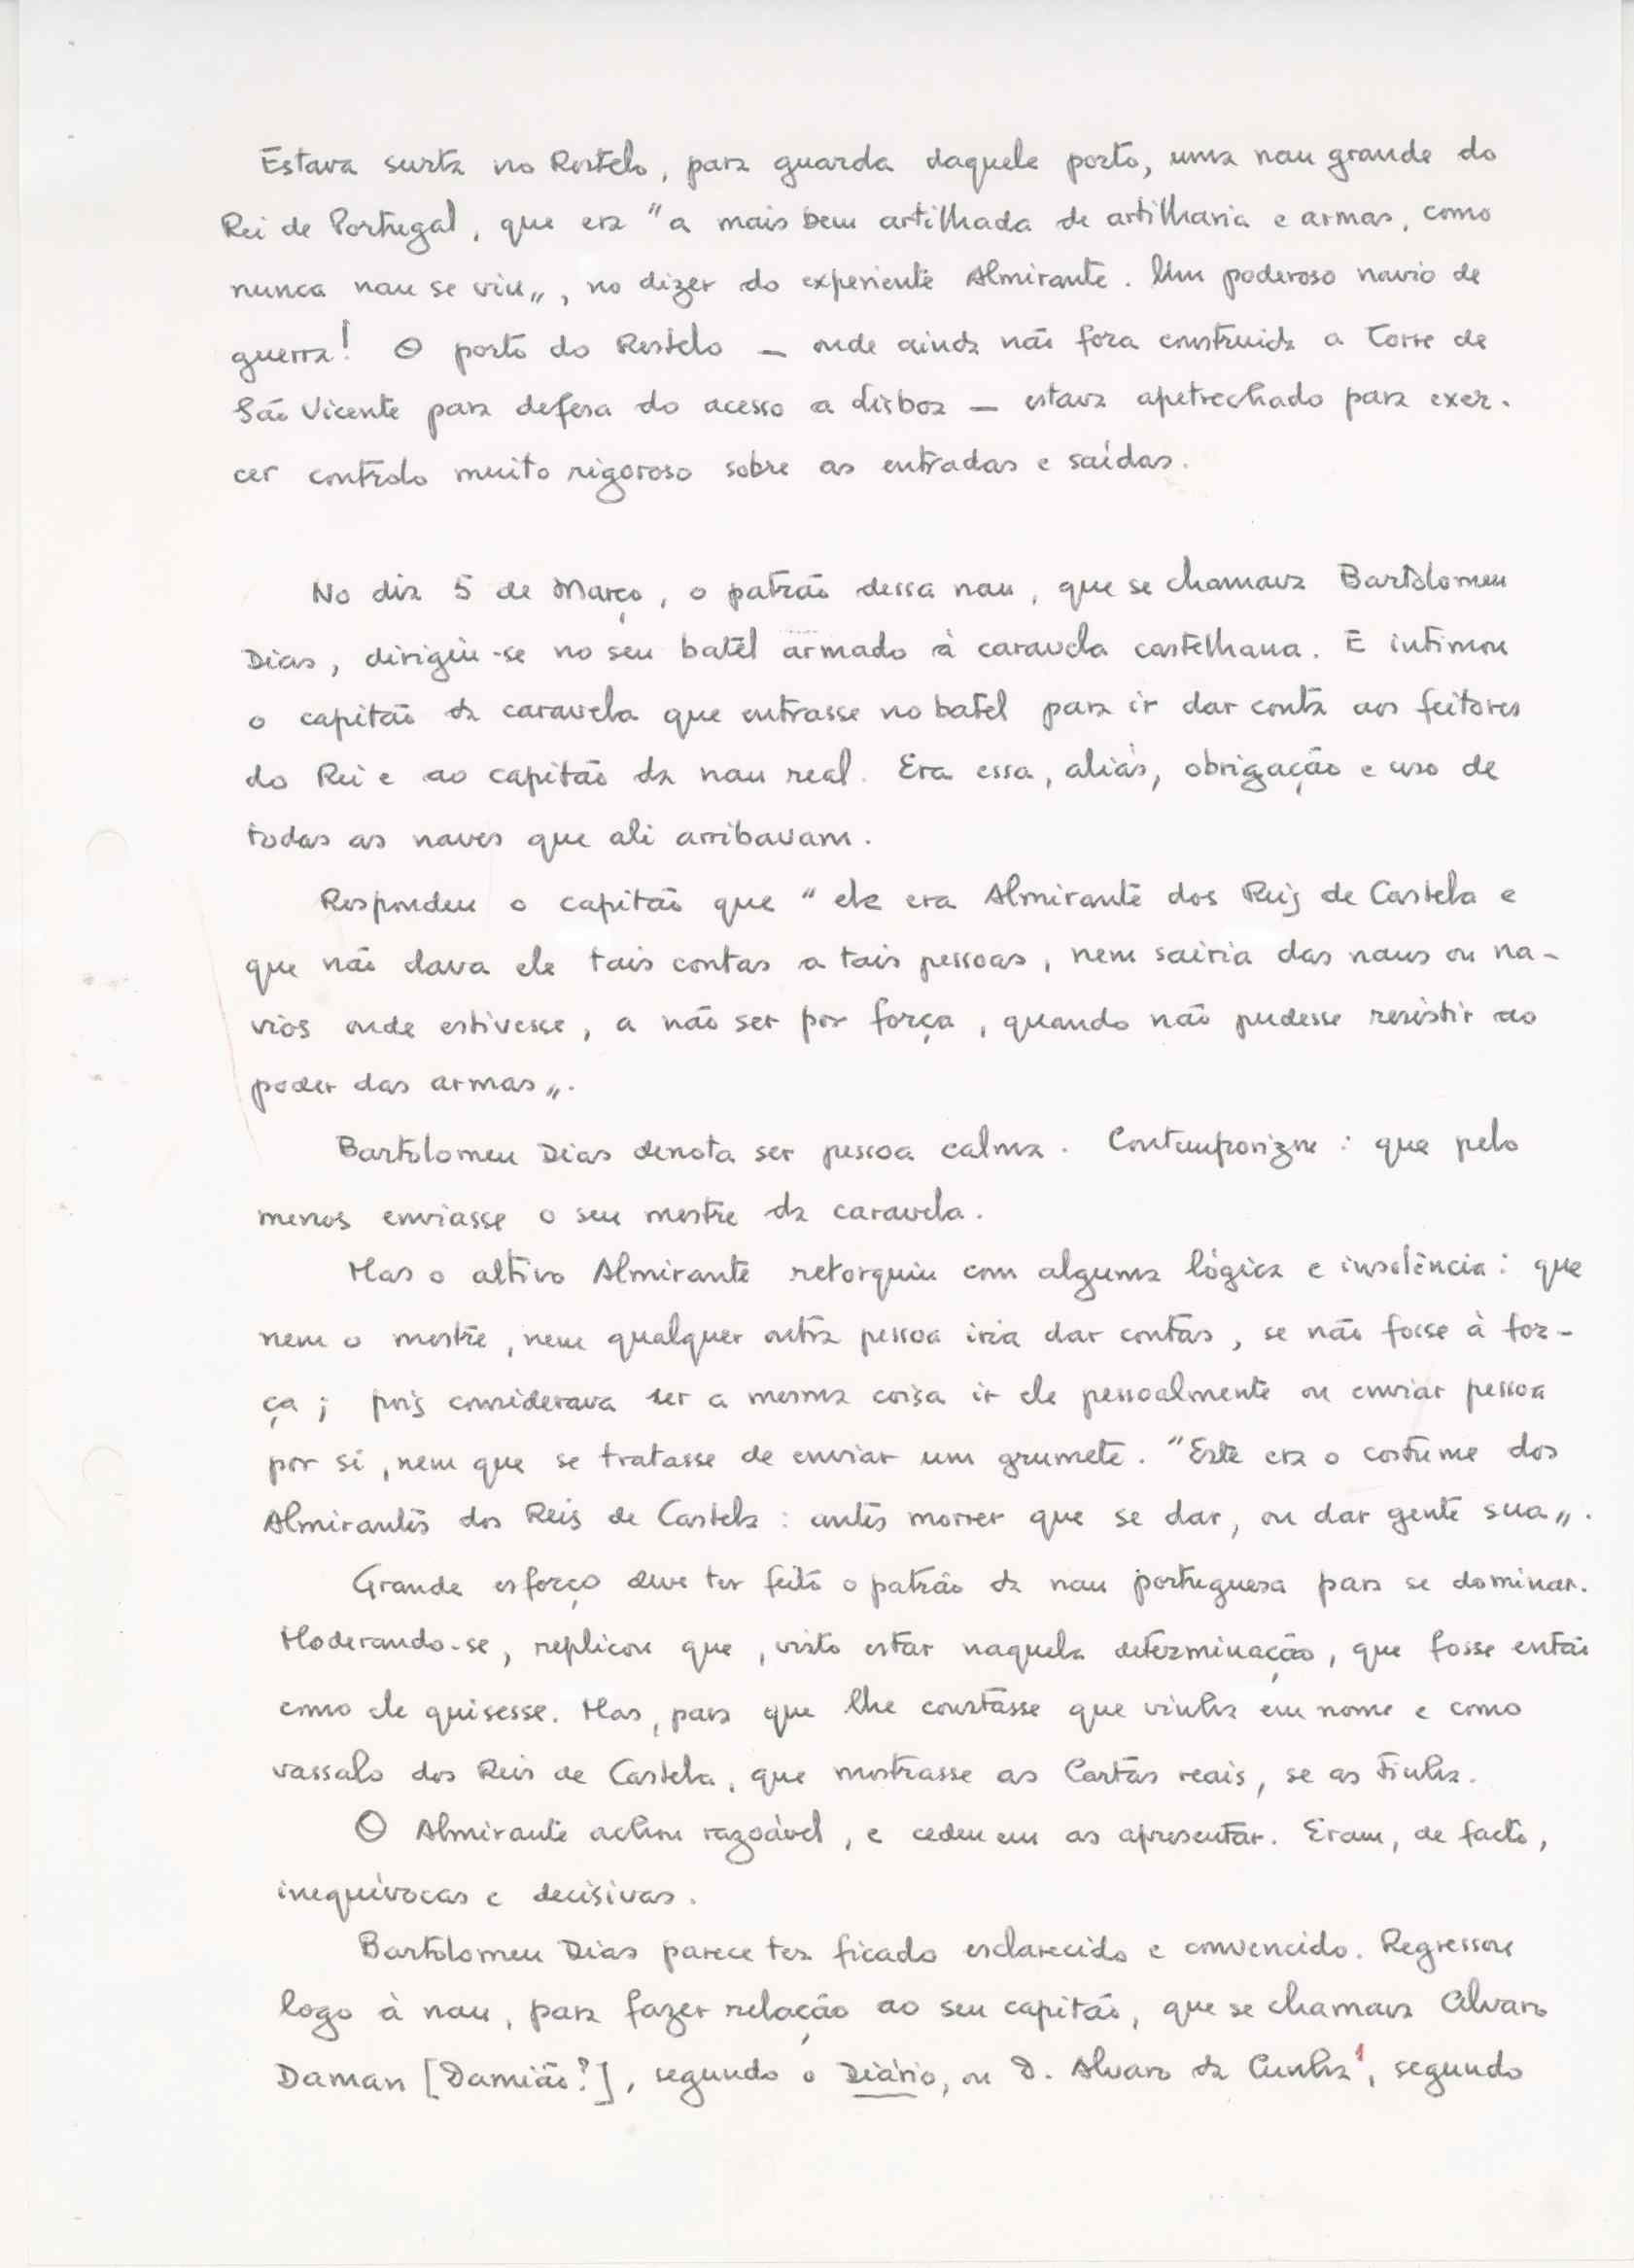 Estava surta no Restelo, para guarda daquele porto, uma nau grande do
Rei de Portugal, que era "a mais bem artilhada de artilharia e armas, como
nunca nau se viu", no dizer do experiente Almirante. Um poderoso navio de
guerra! O porto do Restelo — onde ainda não fora construida a Torre de
São Vicente para defesa do acesso a Lisboa — estava apetrechado para exer-
cer controlo muito rigoroso sobre as entradas e saídas.
No dia 5 de Março, o patrão dessa nau, que se chamava Bartolomeu
Dias, dirigiu-se no seu batel armado à caravela castelhana. E intimou
o capitão da caravela que entrasse no batel para ir dar conta aos feitores
do Rei e ao capitão da nau real. Era essa, aliás, obrigação e uso de
todas as naves que ali arribavam.
Respondeu o capitão que "ele era Almirante dos Reis de Castela e
que não dava ele tais contas a tais pessoas, nem sairia das naus ou na-
vios onde estivesse, a não ser por força, quando não pudesse resistir ao
poder das armas".
Bartolomeu Dias denota ser pessoa calma. Contemporizou: que pelo
menos enviasse o seu mestre da caravela.
Mas o altivo Almirante retorquiu com alguma lógica e insolência: que
nem o mestre, nem qualquer outra pessoa iria dar contas, se não fosse à for-
ça; pois considerava ser a mesma coisa ir ele pessoalmente ou enviar pessoa
por si, nem que se tratasse de enviar um grumete. "Este era o costume dos
Almirantes dos Reis de Castela: antes morrer que se dar, ou dar gente sua".
Grande esforço deve ter feito o patrão da nau portuguesa para se dominar.
Moderando-se, replicou que, visto estar naquela determinação, que fosse então
como ele quisesse. Mas, para que lhe constasse que vinha em nome e como
vassalo dos Reis de Castela, que mostrasse as Cartas reais, se as tinha.
O Almirante achou razoável, e cedeu em as apresentar. Eram, de facto,
inequívocas e decisivas.
Bartolomeu Dias parece ter ficado esclarecido e convencido. Regressou
logo à nau, para fazer relação ao seu capitão, que se chamava Alvaro
Daman [Damião?], segundo o Diário, ou D. Alvaro da Cunha¹, segundo